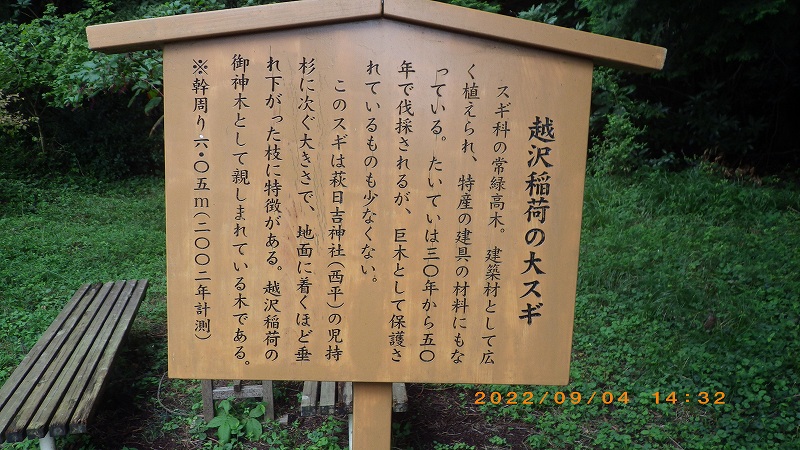 越沢稲荷の大スギ
スギ科の常緑高木。建築材として広
く植えられ、特産の建具の材料にもな
っている。たいていは三〇年から五〇
年で伐採されるが、巨木として保護さ
れているものも少なくない。
このスギは萩日吉神社(西平)の児持
杉に次ぐ大きさで、地面に着くほど垂
れ下がった枝に特徴がある。越沢稲荷の
御神木として親しまれている木である。
※幹周り六・〇五m(二〇〇二年計測)
2022/09/04 14:32